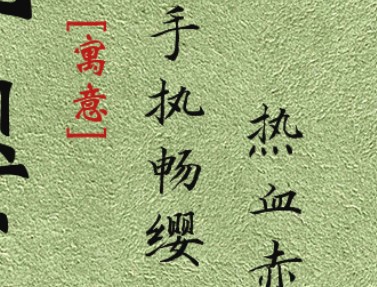 热血赤
手执畅缨
[寓意]